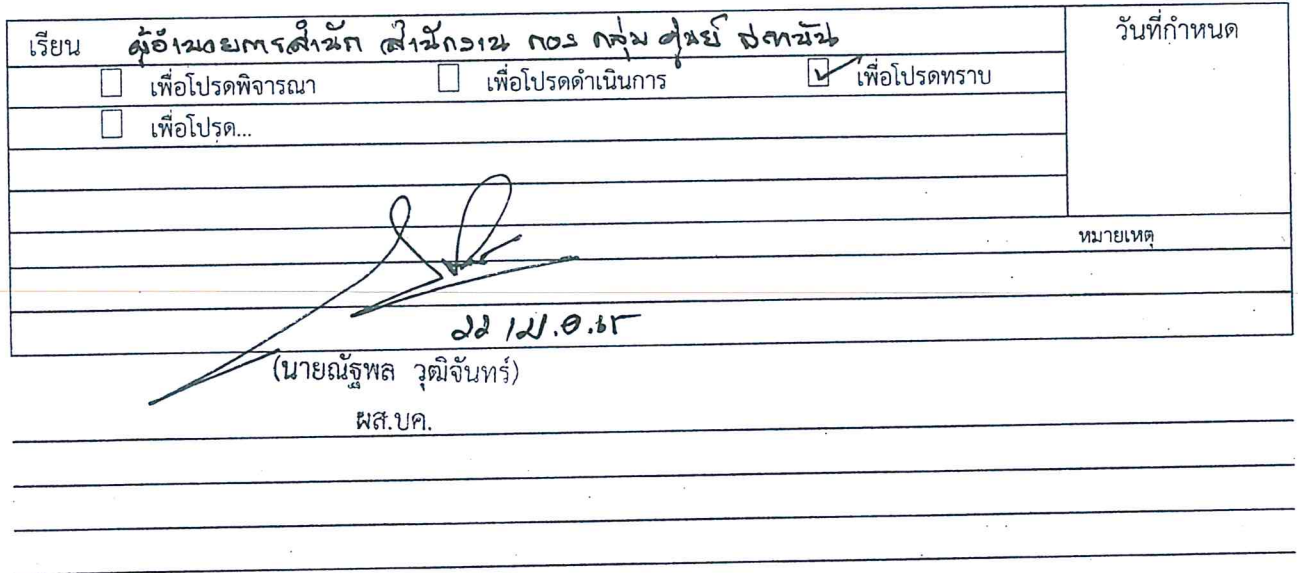 เรียน ผู้อำนวยการสำนัก สำนักงาน กอง กลุ่ม ศูนย์ สถาบัน
วันที่กำหนด
เพื่อโปรดพิจารณา เพื่อโปรดดำเนินการ เพื่อโปรดทราบ
เพื่อโปรด...
หมายเหตุ
๒๒ เม.ย.๖๕
(นายณัฐพล วุฒิจันทร์)
ผส.บค.